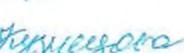 Кузнецова